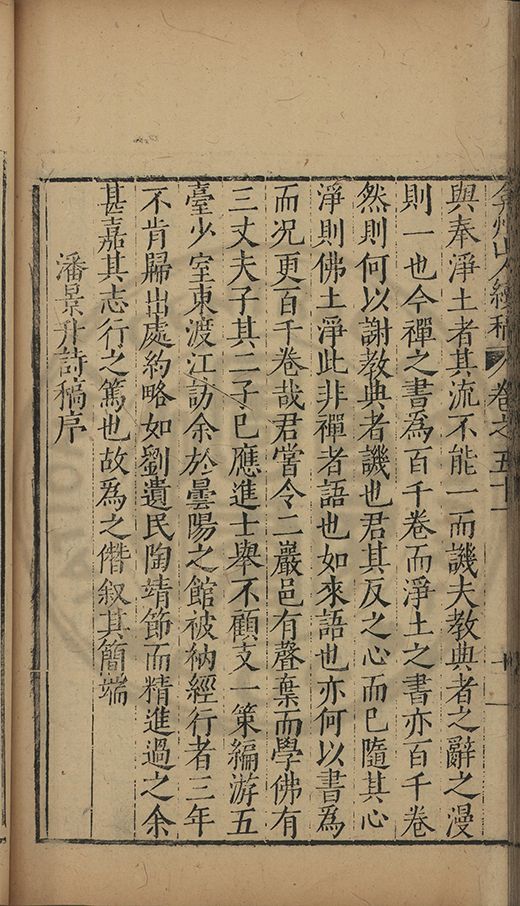 弇州山人續稿 卷之五十一 十一
與奉淨土者其流不能一而譏夫教典者之辭之漫
則一也今禪之書爲百千卷而淨土之書亦百千卷
然則何以謝教典者譏也君其反之心而已隨其心
淨則佛土淨此非禪者語也如來語也亦何以書爲
而况更百千卷哉君嘗令二巖邑有聲棄而學佛有
三丈夫子其二子已應進士舉不顧支一策編游五
臺少室東渡江訪余於曇陽之館被衲經行者三年
不肯歸出處約略如劉遺民陶靖節而精進過之余
甚嘉其志行之篤也故爲之僭叙其簡端
潘景升詩稿序